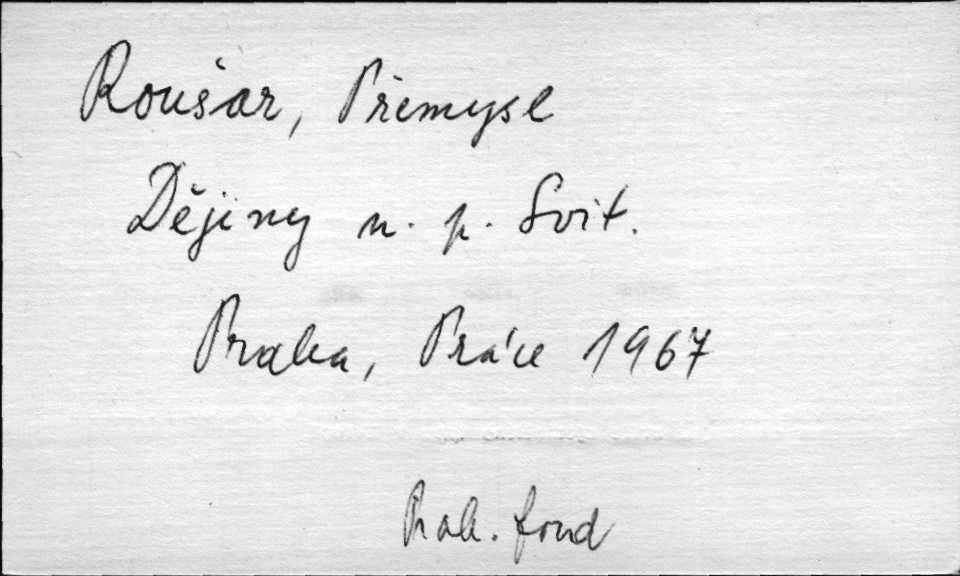 Roušar, Přemysl
Dějiny n. p. Svit.
Praha, Práce 1967
fond